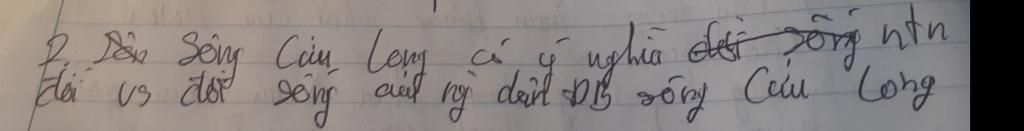 2. Sông Cửu Long có ý nghĩa ntn
đối vs đời sống của ng dân ĐB sông Cửu Long